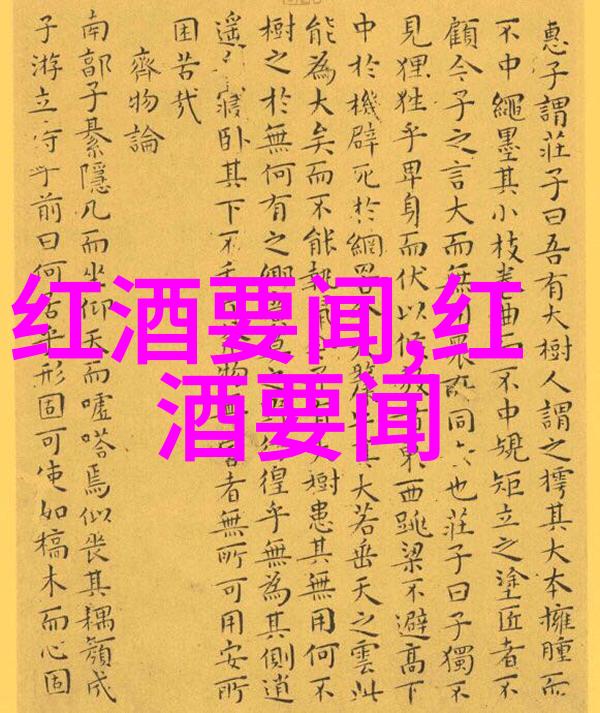 惠子謂莊子曰吾有大樹人謂之樗其大本擁腫而
不中繩墨其小枝卷曲而不中規矩立之塗匠者不
顧今子之言大而無用衆所同去也莊子曰子獨不
見狸狌乎卑身而伏以候敖東西跳梁不避高下
中於機辟死於網罟其大若垂天之雲此
能為大矣而不能執鼠樹患其無用何不
樹之於無何有之鄉徨乎無為其側逍
遥寢卧其下不物害者無所可用安所
困苦哉
齊物論
南郭子綦隱几而坐仰天而噓嗒焉似喪其耦顏成
子游立侍乎前曰何居乎形固可使如槁木而心固
红酒要闻,红
酒要闻